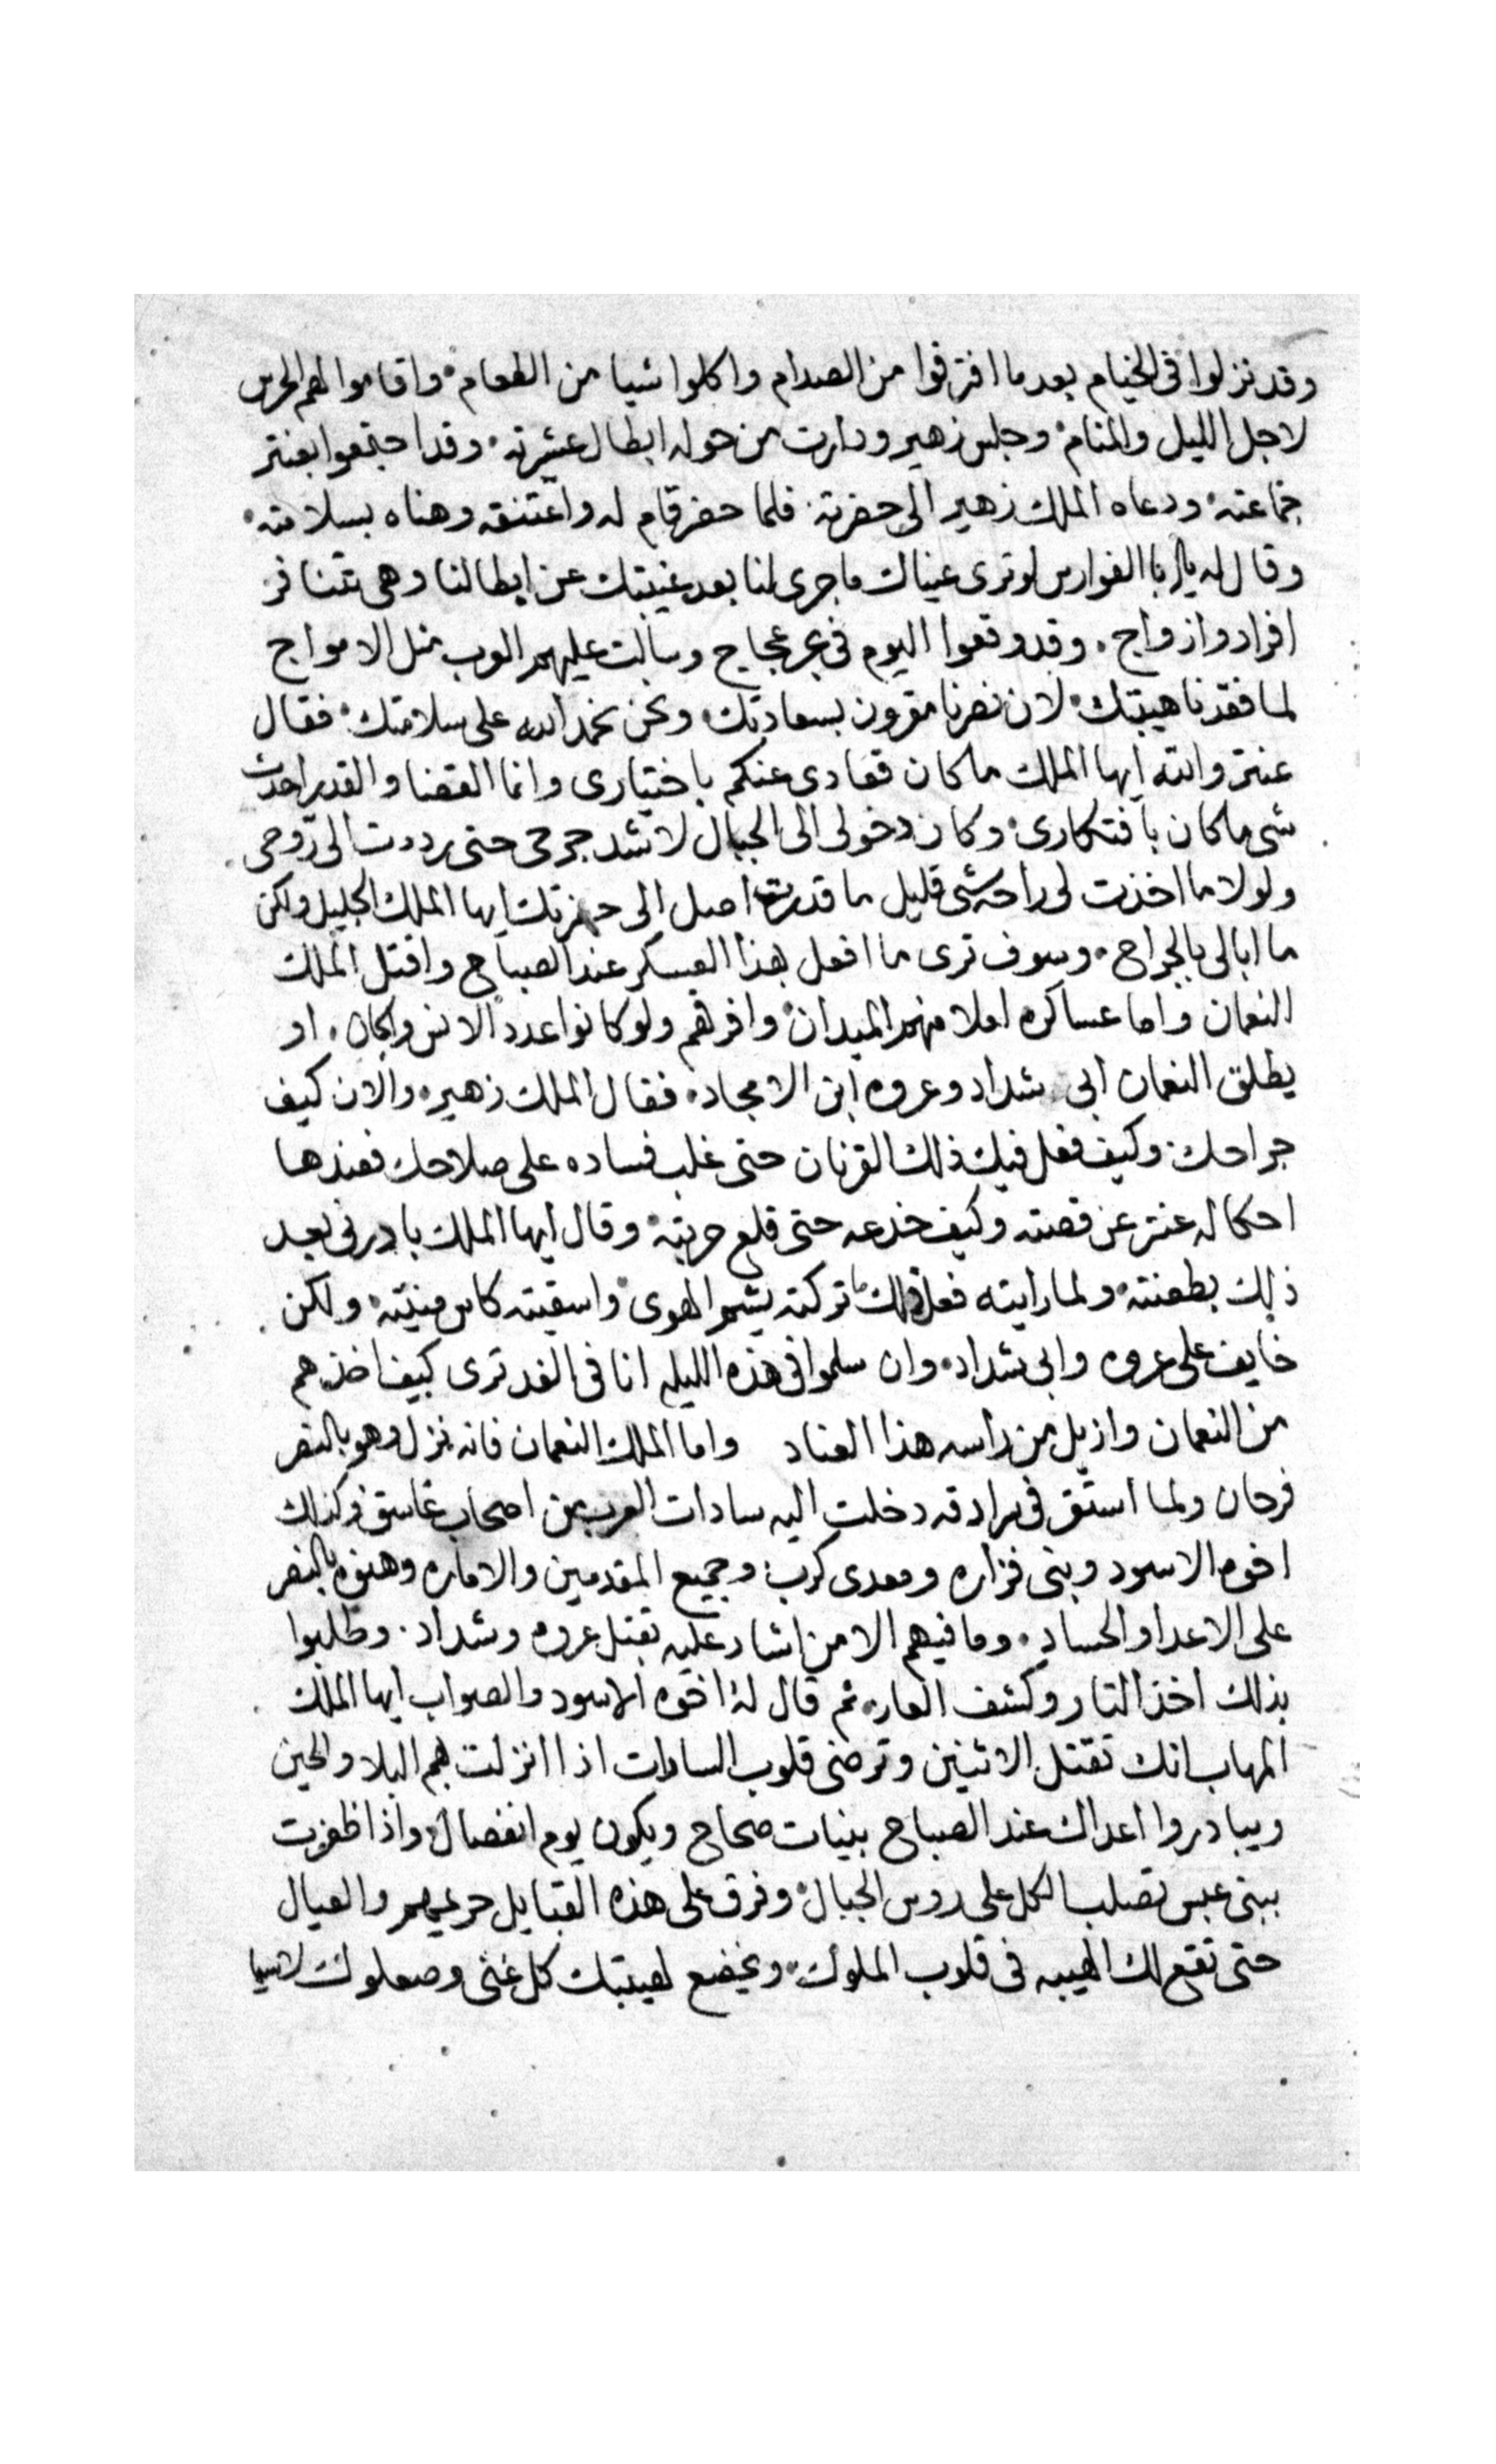 وقد نزلوا في الخيام بعد ما افترقوا من الصدام واكلوا شيا من الطعام واقاموا لهم الحرس
لاجل الليل والمنام وجلس زهير ودارت من حوله ابطال عشيرته وقد اجتمعوا بعنتر
جماعته ودعاه الملك زهير الى حضرته فلما حضر قام له واعتنقه وهناه بسلامته
وقال له يا ابا الفوارس لو ترى عيناك ما جرى لنا بعد غيبتك عن ابطالنا وهي تتنافر
افراد وازواج وقد وقعوا اليوم في بحر عجاج وسالت عليهم العرب مثل الامواج
لما فقدنا هيبتك لان نصرنا مقرون بسعادتك ونحن نحمد الله على سلامتك فقال
عنتر والله ايها الملك ما كان قعادي عنكم باختياري وانما القضا والقدر احدث
شي ما كان بافتكاري وكان دخولي الى الجبال لاشد جرحي حتى رددت الي روحي
ولولا ما اخذت لي راحه شي قليل ما قدرت اصل الى حضرتك ايها الملك الجليل ولكن
ما ابالي بالجراح وسوف ترى ما افعل بهذا العسكر عند الصباح واقتل الملك
النعمان واما عساكره املا منهم الميدان وافرقهم ولو كانوا عدد الانس والجان او
يطلق النعمان ابي شداد وعروه ابن الامجاد فقال الملك زهير والان كيف
جراحك وكيف فعل فيك ذلك القرنان حتى غلب فساده على صلاحك فعندها
احكا له عنتر عن قصته وكيف خدعه حتى قلع حربته وقال ايها الملك بادرني بعد
ذلك بطعنته ولما رايته فعل ذلك ما تركته يشم الهوى واسقيته كاس منيته ولكن
خايف على عروه وابي شداد وان سلموا في هذه الليله انا في الغد ترى كيف اخذهم
من النعمان وازيل من راسه هذا العناد واما الملك النعمان فانه نزل وهو بالنصر
فرحان ولما استقر في سرادقه دخلت اليه سادات العرب من اصحاب وكذلك
اخوه الاسود وبني فزاره ومعدي كرب وجميع المقدمين والاماره وهنوه بالنصر
على الاعدا والحساد وما فيهم الا من اشار عليه بقتل عروه وشداد وطلبوا
بذلك اخذ التار وكشف العار ثم قال له اخوه الاسود والصواب ايها الملك
المهاب انك تقتل الاثنين وترضي قلوب السادات اذا انزلت بهم البلا والحين
ويبادروا اعداك عند الصباح بنيات صحاح ويكون يوم انفصال واذا ظفرت
ببني عبس تصلب الكل على روس الجبال وفرق على هذه القبايل حريمهم والعيال
حتى تقع لك الهيبه في قلوب الملوك ويخضع لهيبتك كل غني وصعلوك لاسيما